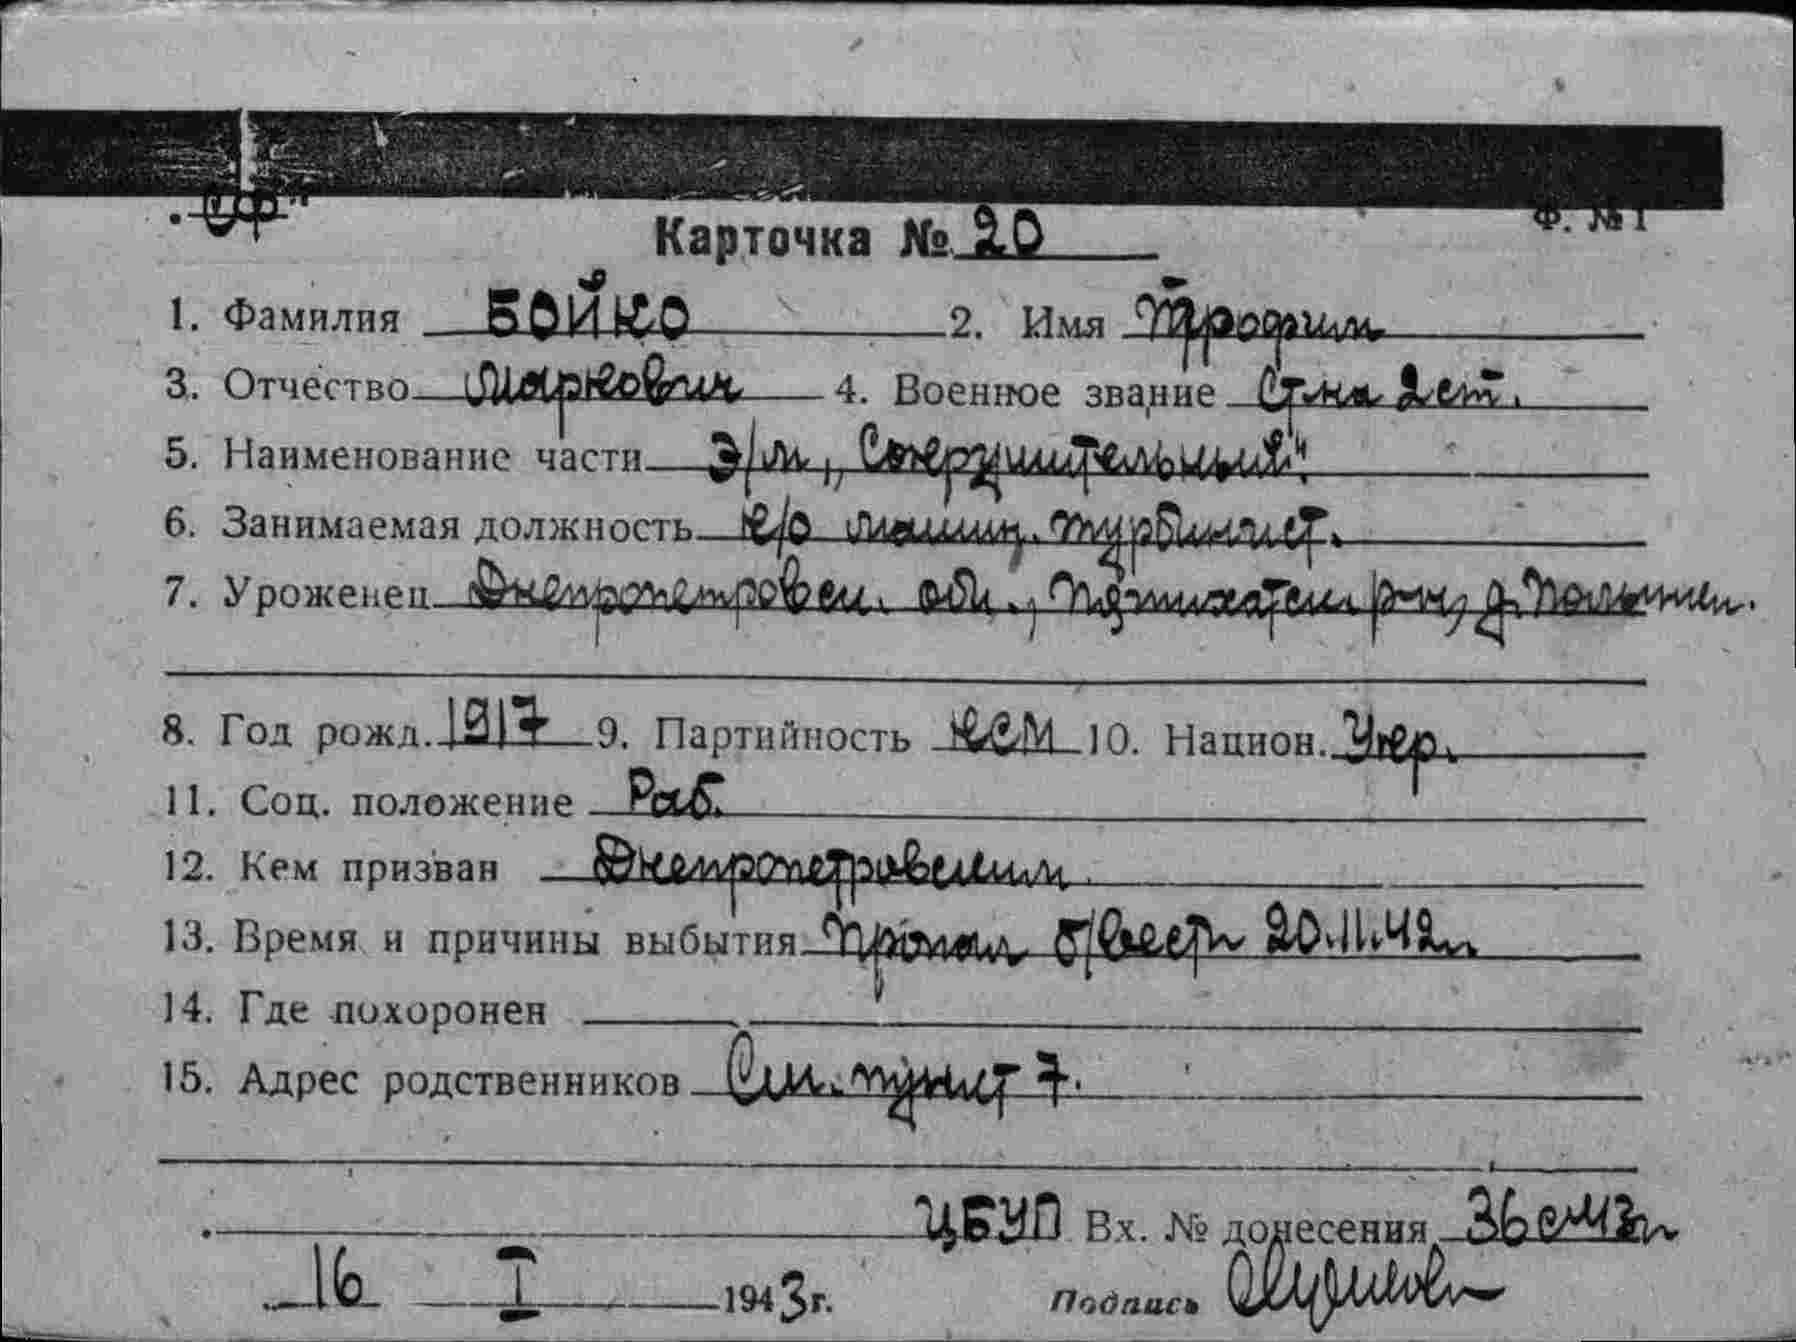 Ф. №1
Карточка № 20
1. Фамилия БОЙКО 2. Имя Трофим
3. Отчество Маркович 4. Военное звание Ст-на 2 ст.
5. Наименование части Э/м „Сокрушительный".
6. Занимаемая должность к/о машин. турбинист.
7. Уроженец Днепропетровск. обл., Пятихатск. р-н, д.
8. Год рожд. 1917 9. Партийность КСМ 10. Национ. Укр.
11. Соц. положение Раб.
12. Кем призван Днепропетровским
13. Время и причины выбытия Пропал б/вести 20.11.42г.
14. Где похоронен
15. Адрес родственников См. пункт 7.
ЦБУП Вх. № донесения
16 I 1943г. Подпись